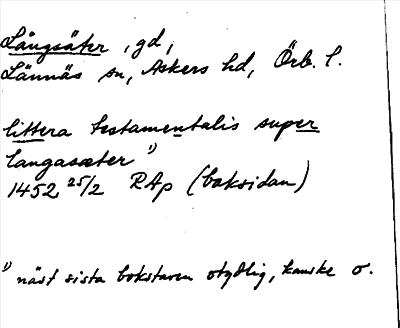 Långsäter, gd,
Lännäs sn, Askers hd, Örb. l.
littera testamentalis super
langasæter 1)
1452 25/2 RAp (baksidan)
1) näst sista bokstaven otydlig, kanske o.